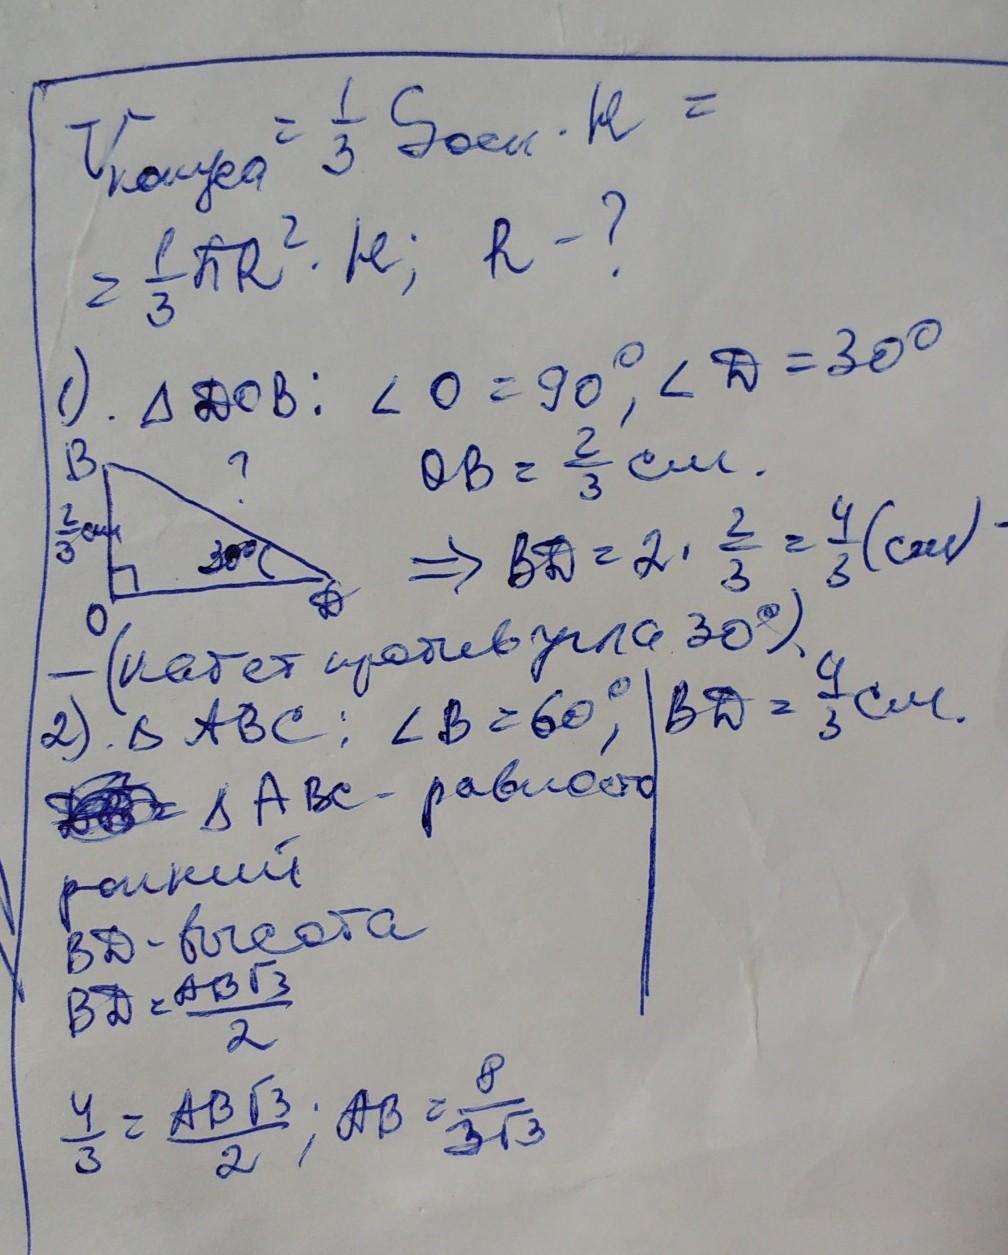 Vконуса = 1/3 Sосн · H =
= 1/3 πR² · H; R - ?
1). △DOB: ∠O = 90°, ∠D = 30°
OB = 2/3 см.
B ?
2/3 см
30°
O D
⇒ BD = 2 · 2/3 = 4/3 (см) -
- (катет против угла 30°).
2). △ ABC: ∠B = 60°; BD = 4/3 см.
△ ABC - равносто
ронний
BD - высота
BD = AB√3/2
4/3 = AB√3/2; AB = 8/3√3